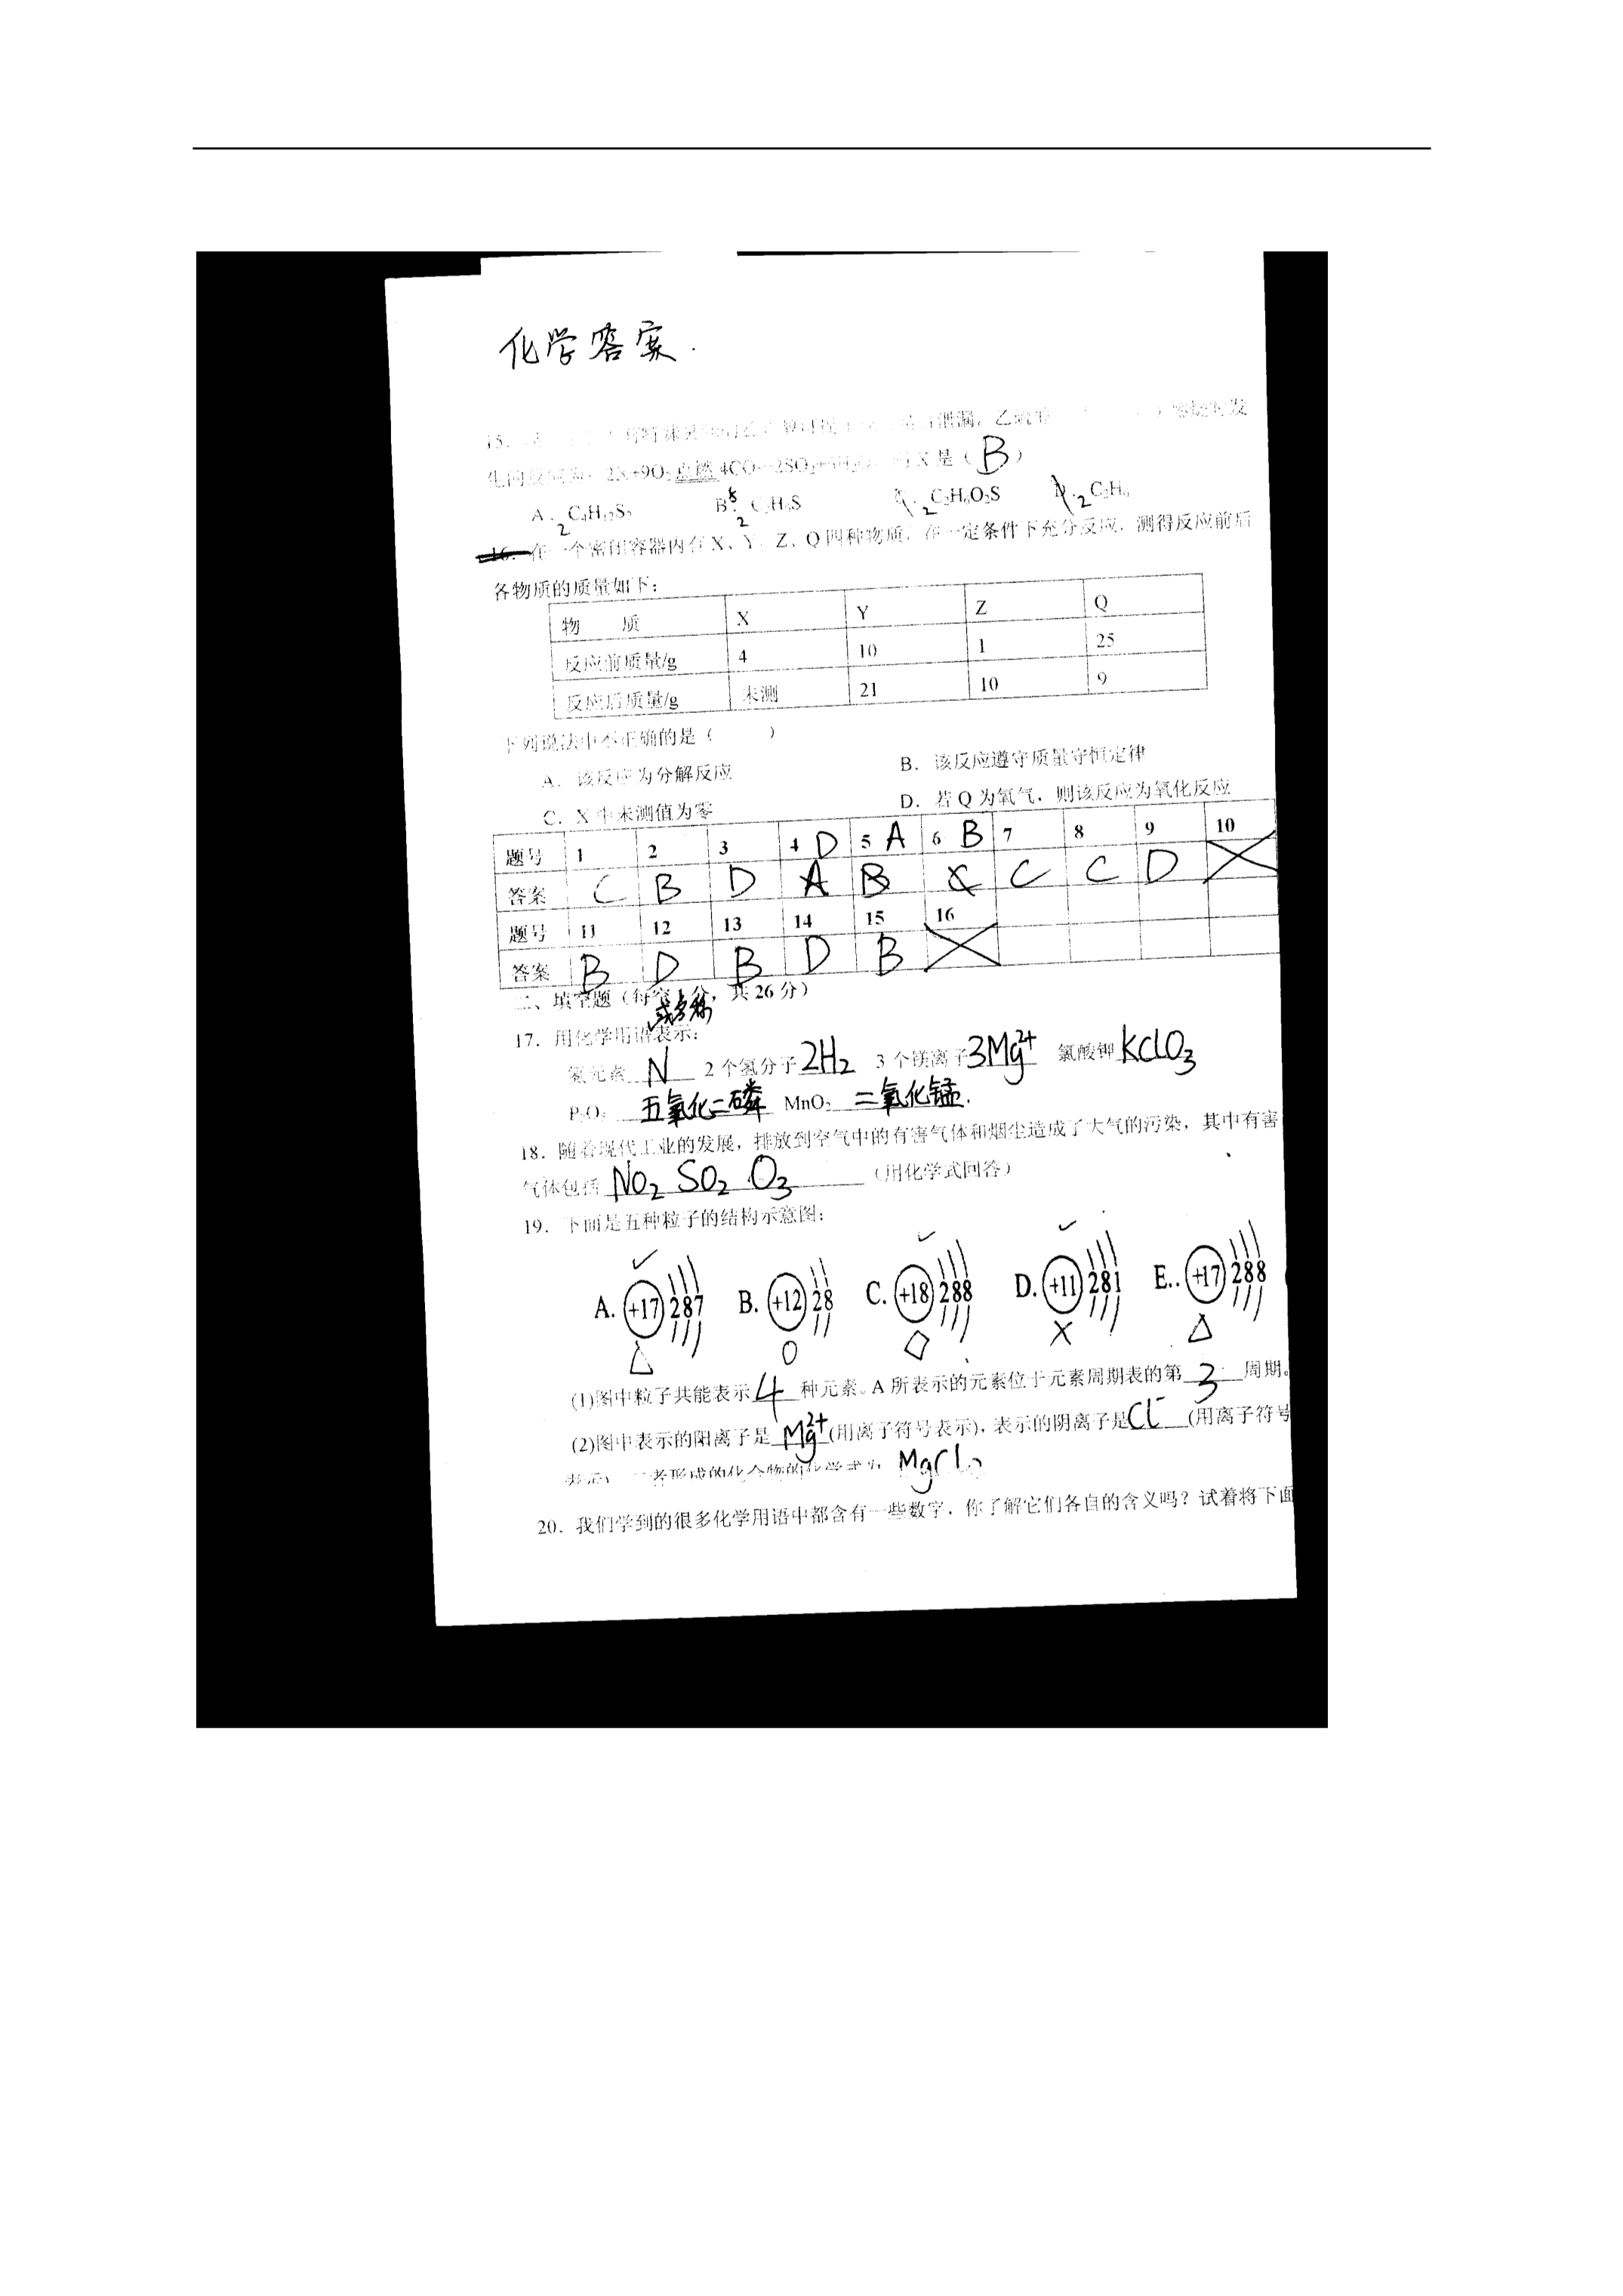 化学答案.
15. 泄漏，乙硫醇 燃烧时发
生的反应为：2X+9O₂ 点燃 4CO₂+2SO₂+6H₂O，则X是（ B ）
A. C₄H₁₂S₂ B. C₂H₆S C. C₂H₆O₂S D. C₂H₆
16. 在一个密闭容器内有X、Y、Z、Q四种物质，在一定条件下充分反应，测得反应前后
各物质的质量如下：
物 质 X Y Z Q
反应前质量/g 4 10 1 25
反应后质量/g 未测 21 10 9
下列说法中不正确的是（ ）
A. 该反应为分解反应 B. 该反应遵守质量守恒定律
C. X中未测值为零 D. 若Q为氧气，则该反应为氧化反应
题号 1 2 3 4 D 5 A 6 B 7 8 9 10
答案 C B D A B C C D
题号 11 12 13 14 15 16
答案 B D B D B
二、填空题（每空1分，共26分）
或名称
17. 用化学用语表示：
氮元素 N 2个氢分子 2H₂ 3个镁离子 3Mg²⁺ 氯酸钾 KClO₃
P₂O₅ 五氧化二磷 MnO₂ 二氧化锰.
18. 随着现代工业的发展，排放到空气中的有害气体和烟尘造成了大气的污染，其中有害
气体包括 NO₂ SO₂ O₃ （用化学式回答）
19. 下面是五种粒子的结构示意图：
A. +17 287 B. +12 28 C. +18 288 D. +11 281 E.. +17 288
(1)图中粒子共能表示 4 种元素。A所表示的元素位于元素周期表的第 3 周期。
(2)图中表示的阳离子是 Mg²⁺ (用离子符号表示)，表示的阴离子是 Cl⁻ (用离子符号
表示) 二者形成的化合物的化学式为 MgCl₂
20. 我们学到的很多化学用语中都含有一些数字，你了解它们各自的含义吗？试着将下面